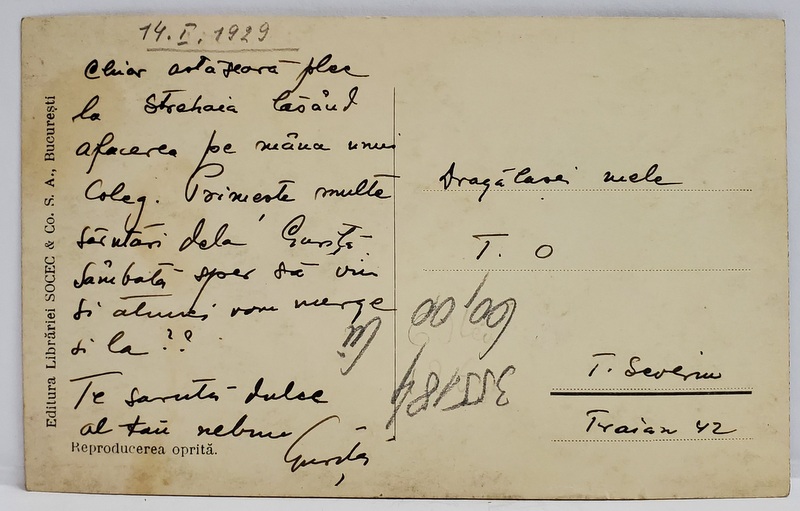 14.I.1929
Chiar astăseară plec
la Strehaia lăsând
afacerea pe mâna unui
coleg. Primește multe
sărutări dela Guriță
sâmbătă sper să vin
și atunci vom merge
și la ??
Te sarută dulce
al tău nebun
Guriță
Drăgălașei mele
T. O
T. Severin
Traian 42
60,00
355184
Editura Librăriei SOCEC & Co. S. A., București
Reproducerea oprită.